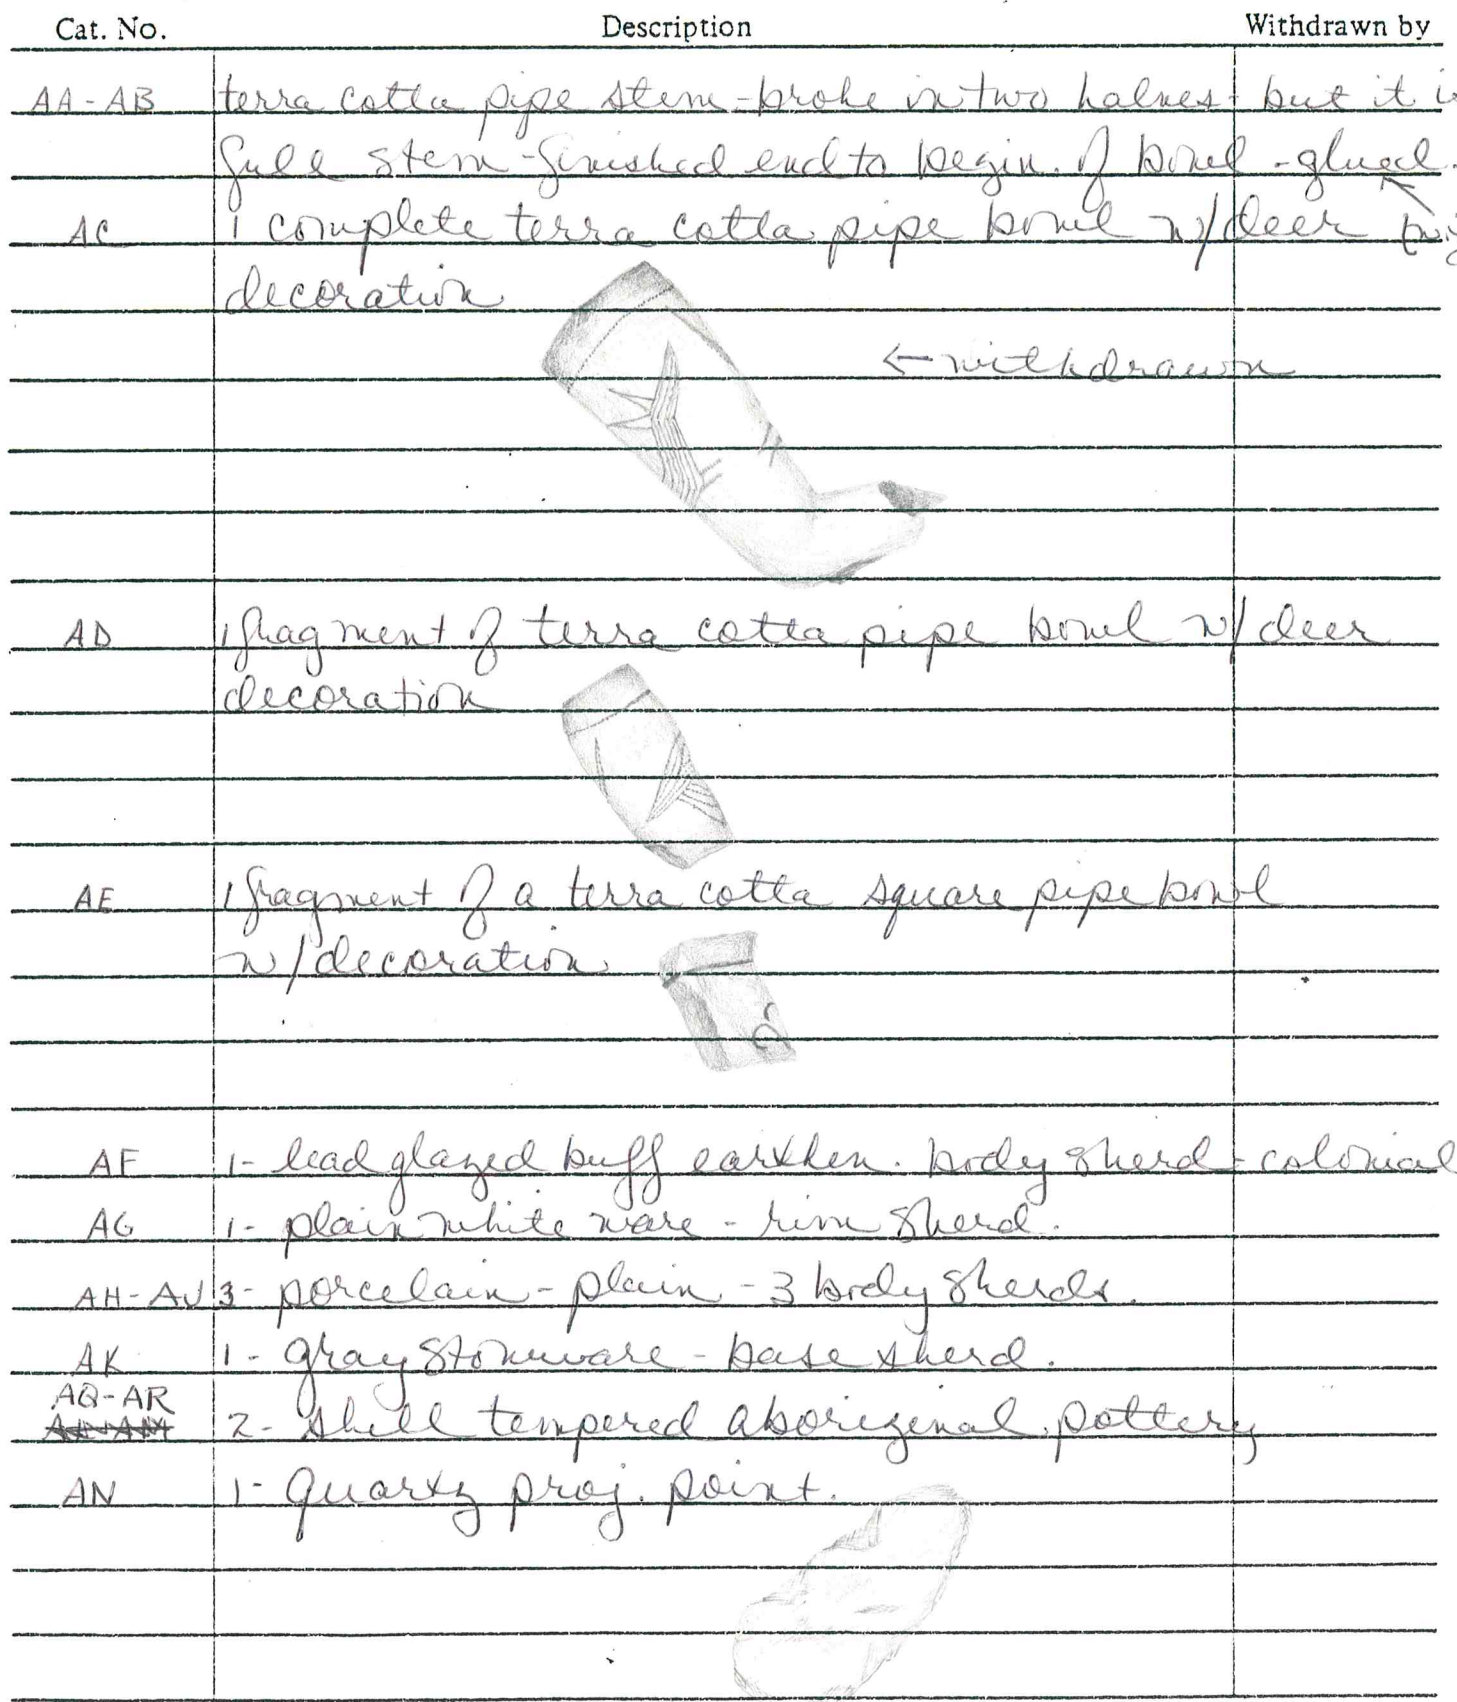 Cat. No. Description Withdrawn by
AA-AB terra cotta pipe stem-broke in two halves but it
full stem-finished end to begin. of bowl -glued.
AC 1 complete terra cotta pipe bowl w/deer
decoration
← withdrawn
AD 1 fragment of terra cotta pipe bowl w/deer
decoration
AE 1 fragment of a terra cotta square pipe bowl
w/decoration
AF 1- lead glazed buff earthen. body sherd - colonial
AG 1- plain white ware - rim sherd.
AH-AJ 3- porcelain - plain - 3 body sherds.
AK 1- gray stoneware - base sherd.
AQ-AR
AL-AM 2- shell tempered aboriginal pottery
AN 1- quartz proj. point.